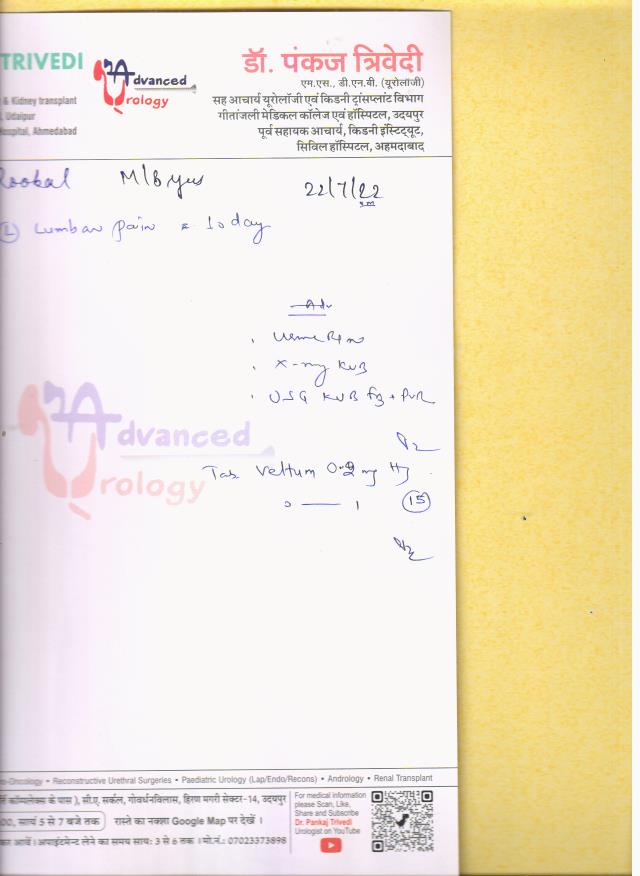 TRIVEDI
& Kidney transplant
Udaipur
Hospital, Ahmedabad
Advanced
Urology
डॉ. पंकज त्रिवेदी
एम.एस., डी.एन.बी. (यूरोलॉजी)
सह आचार्य यूरोलॉजी एवं किडनी ट्रांसप्लांट विभाग
गीतांजली मेडिकल कॉलेज एवं हॉस्पिटल, उदयपुर
पूर्व सहायक आचार्य, किडनी इंस्टिट्यूट,
सिविल हॉस्पिटल, अहमदाबाद
22/7/22
Lumbar pain 10 day
Adv
X-ray KUB
USG KUB + PVR
Advanced
Urology
Tab Veltum 0.2 mg
0 — 1 15
o-Oncology • Reconstructive Urethral Surgeries • Paediatric Urology (Lap/Endo/Recons) • Andrology • Renal Transplant
कॉम्पलेक्स के पास ), सी.ए. सर्कल, गोवर्धनविलास, हिरण मगरी सेक्टर-14, उदयपुर
00, सायं 5 से 7 बजे तक रास्ते का नक्शा Google Map पर देखें ।
कर आवें । अपाइंटमेन्ट लेने का समय सायः 3 से 6 तक । मो.नं.: 07023373898
For medical information
please Scan, Like,
Share and Subscribe
Dr. Pankaj Trivedi
Urologist on YouTube